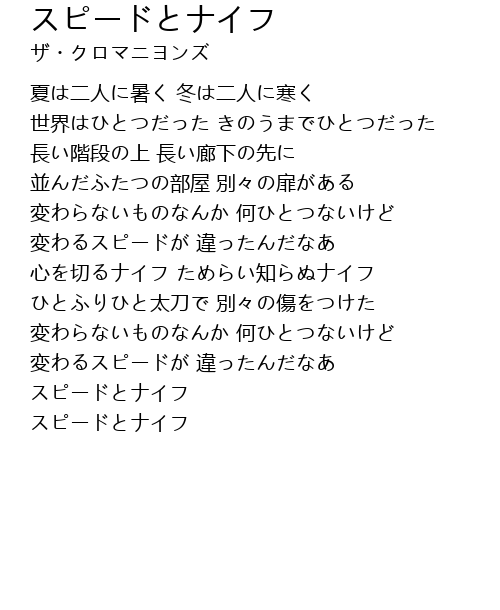 スピードとナイフ
ザ・クロマニヨンズ
夏は二人に暑く 冬は二人に寒く
世界はひとつだった きのうまでひとつだった
長い階段の上 長い廊下の先に
並んだふたつの部屋 別々の扉がある
変わらないものなんか 何ひとつないけど
変わるスピードが 違ったんだなあ
心を切るナイフ ためらい知らぬナイフ
ひとふりひと太刀で 別々の傷をつけた
変わらないものなんか 何ひとつないけど
変わるスピードが 違ったんだなあ
スピードとナイフ
スピードとナイフ